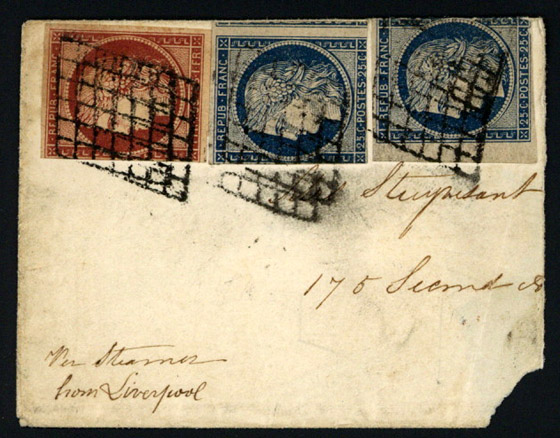 REPUB. FRANC. 1FR
REPUB. FRANC. 25 C. POSTES. 25 C.
REPUB. FRANC. 25 C. POSTES. 25 C.
Stuyvesant
175 Second
Per Steamer
from Liverpool